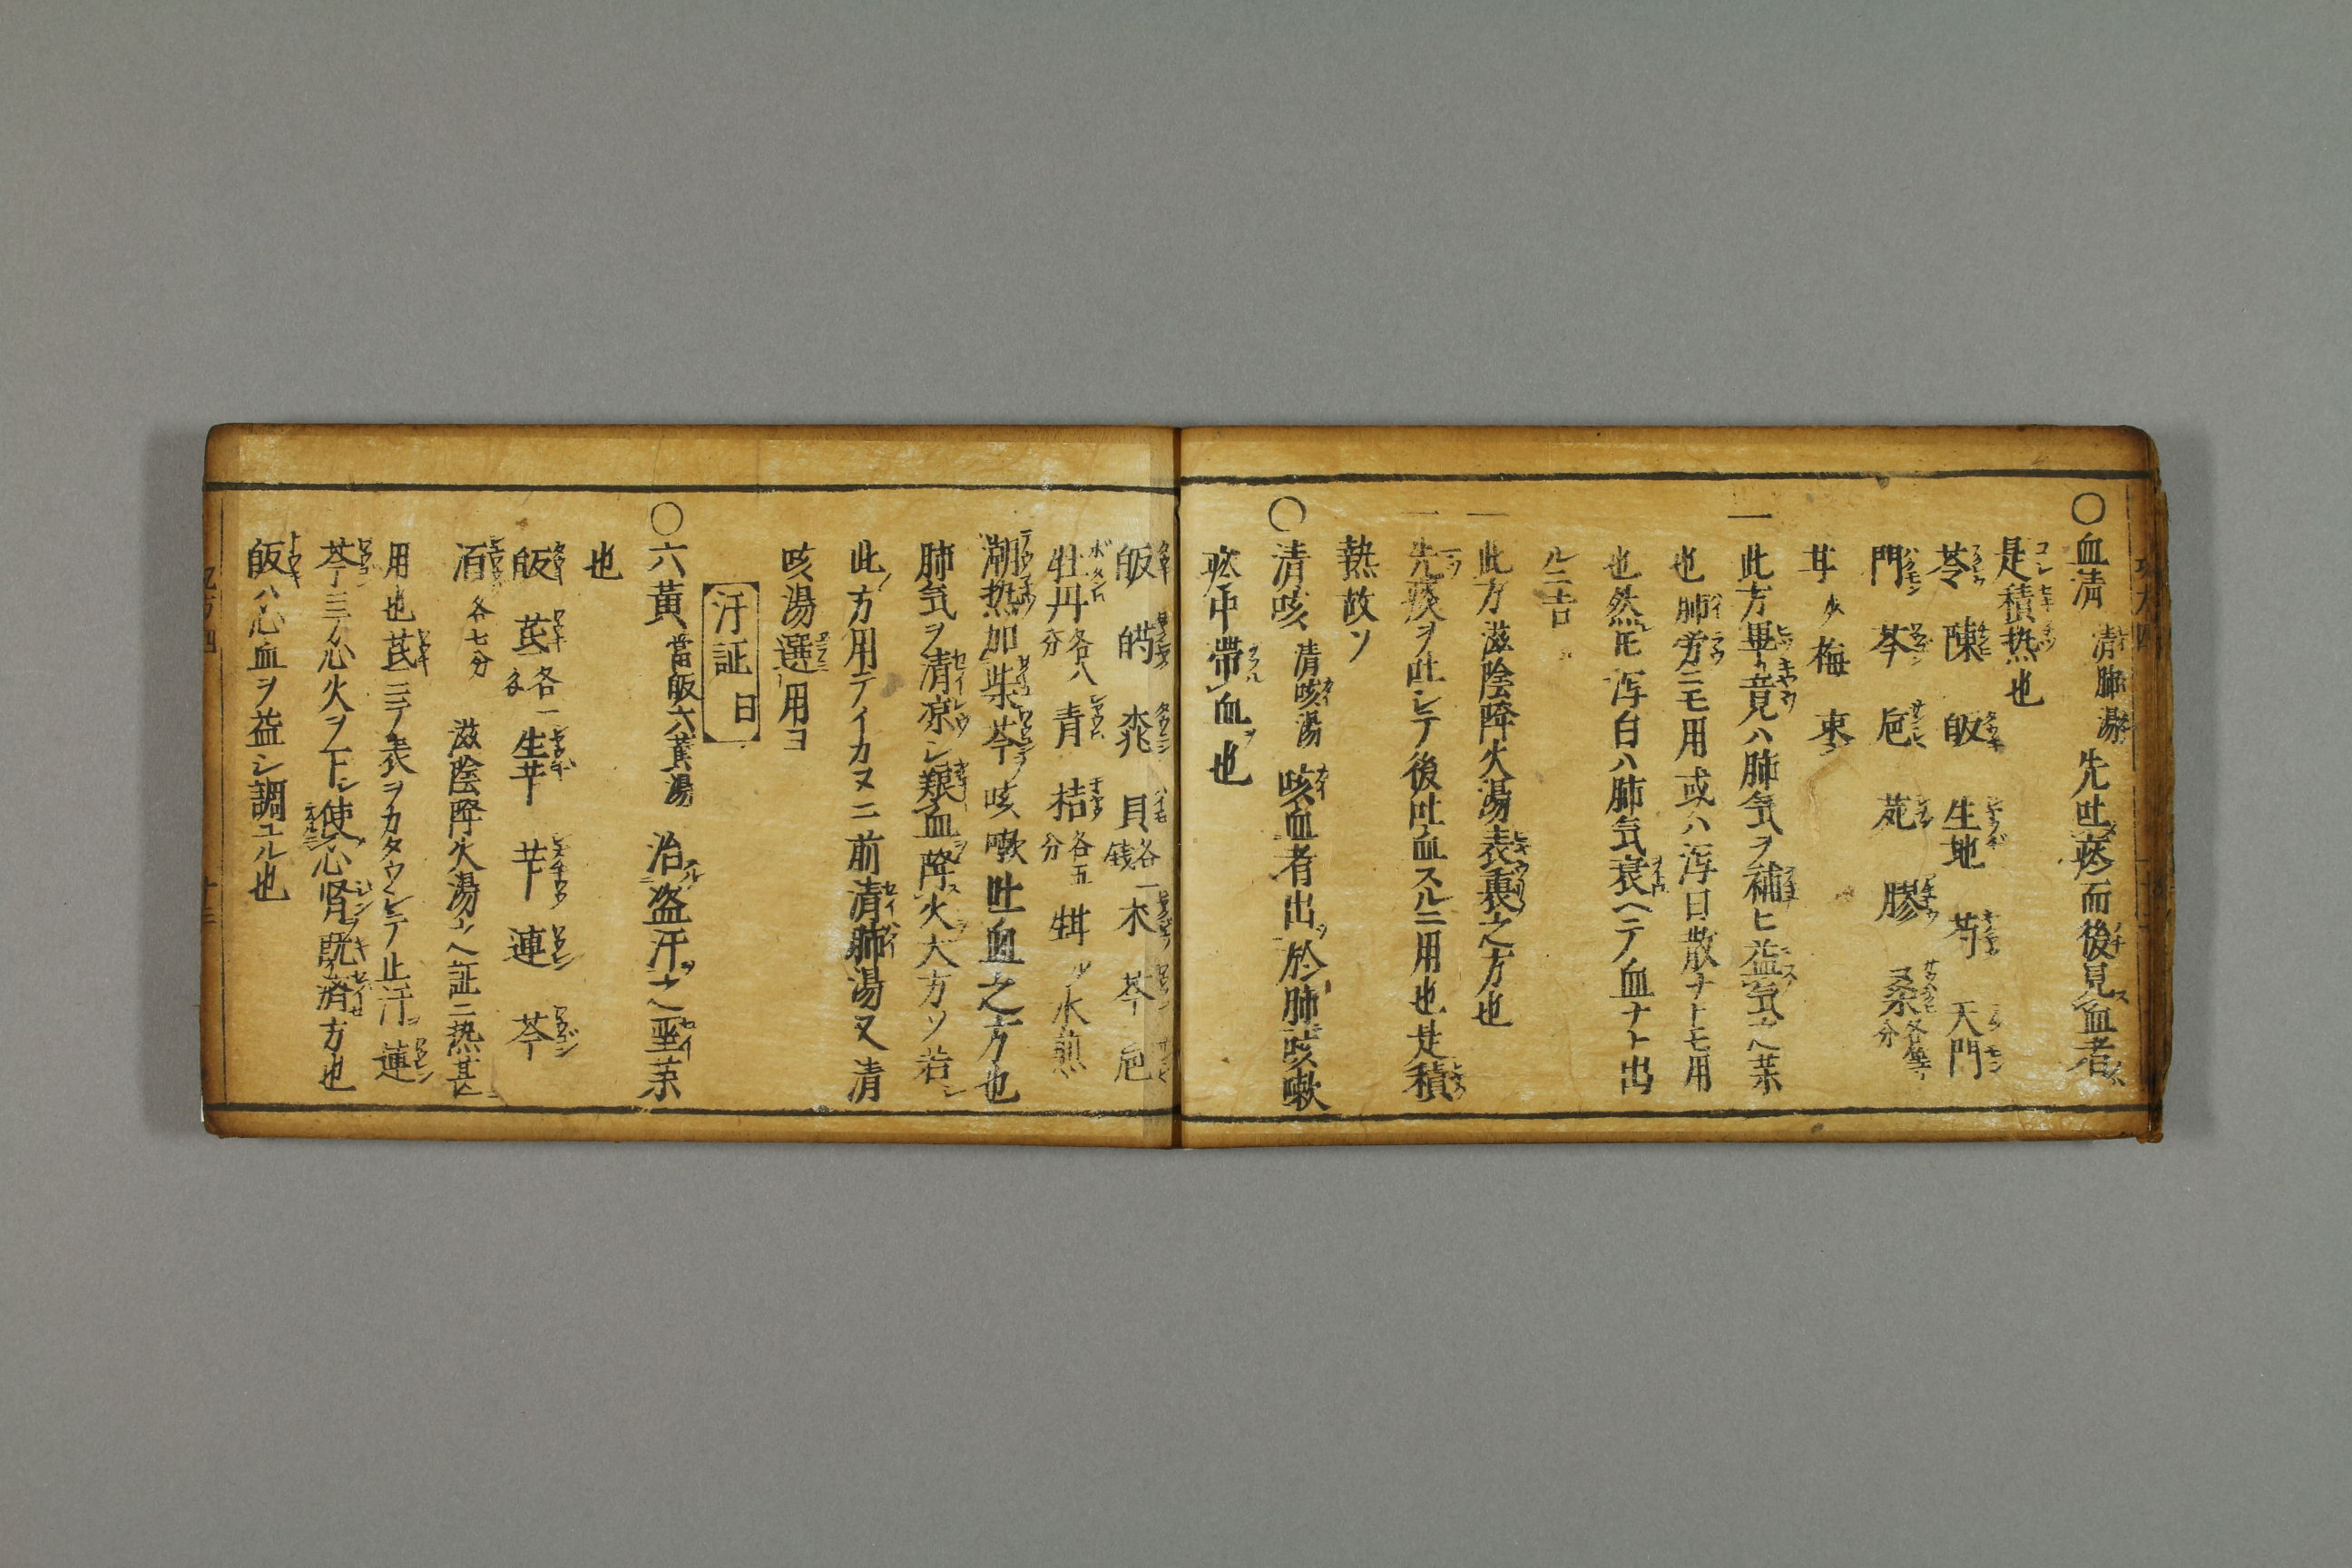 ○血清 清肺湯 先吐痰而後見血者
是積热也
苓 陳 皈 生地 芍 天門
門 芩 巵 苑 膠 桑各等分
甘少 梅 枣
一此方畢竟ハ肺気ヲ補ヒ益気ノ薬
也肺労ニモ用或ハ泻白散ナトモ用
也然𪜈泻白ハ肺気衰ヘテ血ナト出
ルニ吉
一此方滋陰降火湯表裏之方也
一先痰ヲ吐シテ後吐血スルニ用也是積
熱故ソ
○清咳 清咳湯 咳血者出於肺咳嗽
痰中帯血也
皈 芍 桃 貝各一銭 木 芩 巵
牡丹各八分 青 桔各五分 甘少水煎
潮热加柴芩咳嗽吐血之方也
肺気ヲ清凉シ衂血降火大方ソ若
此方用テイカヌニ前清肺湯又清
咳湯選用ヨ
汗証 日
○六黄 當皈六黄湯 治盗汗之聖薬
也
皈 芪各一 生苄 苄 連 芩
栢各七分 滋陰降火湯ノ証ニ热甚
用也芪ニテ表ヲカタウシテ止汗連
芩ニテ心火ヲ下シ使心腎既済方也
皈ハ心血ヲ益シ調ユル也